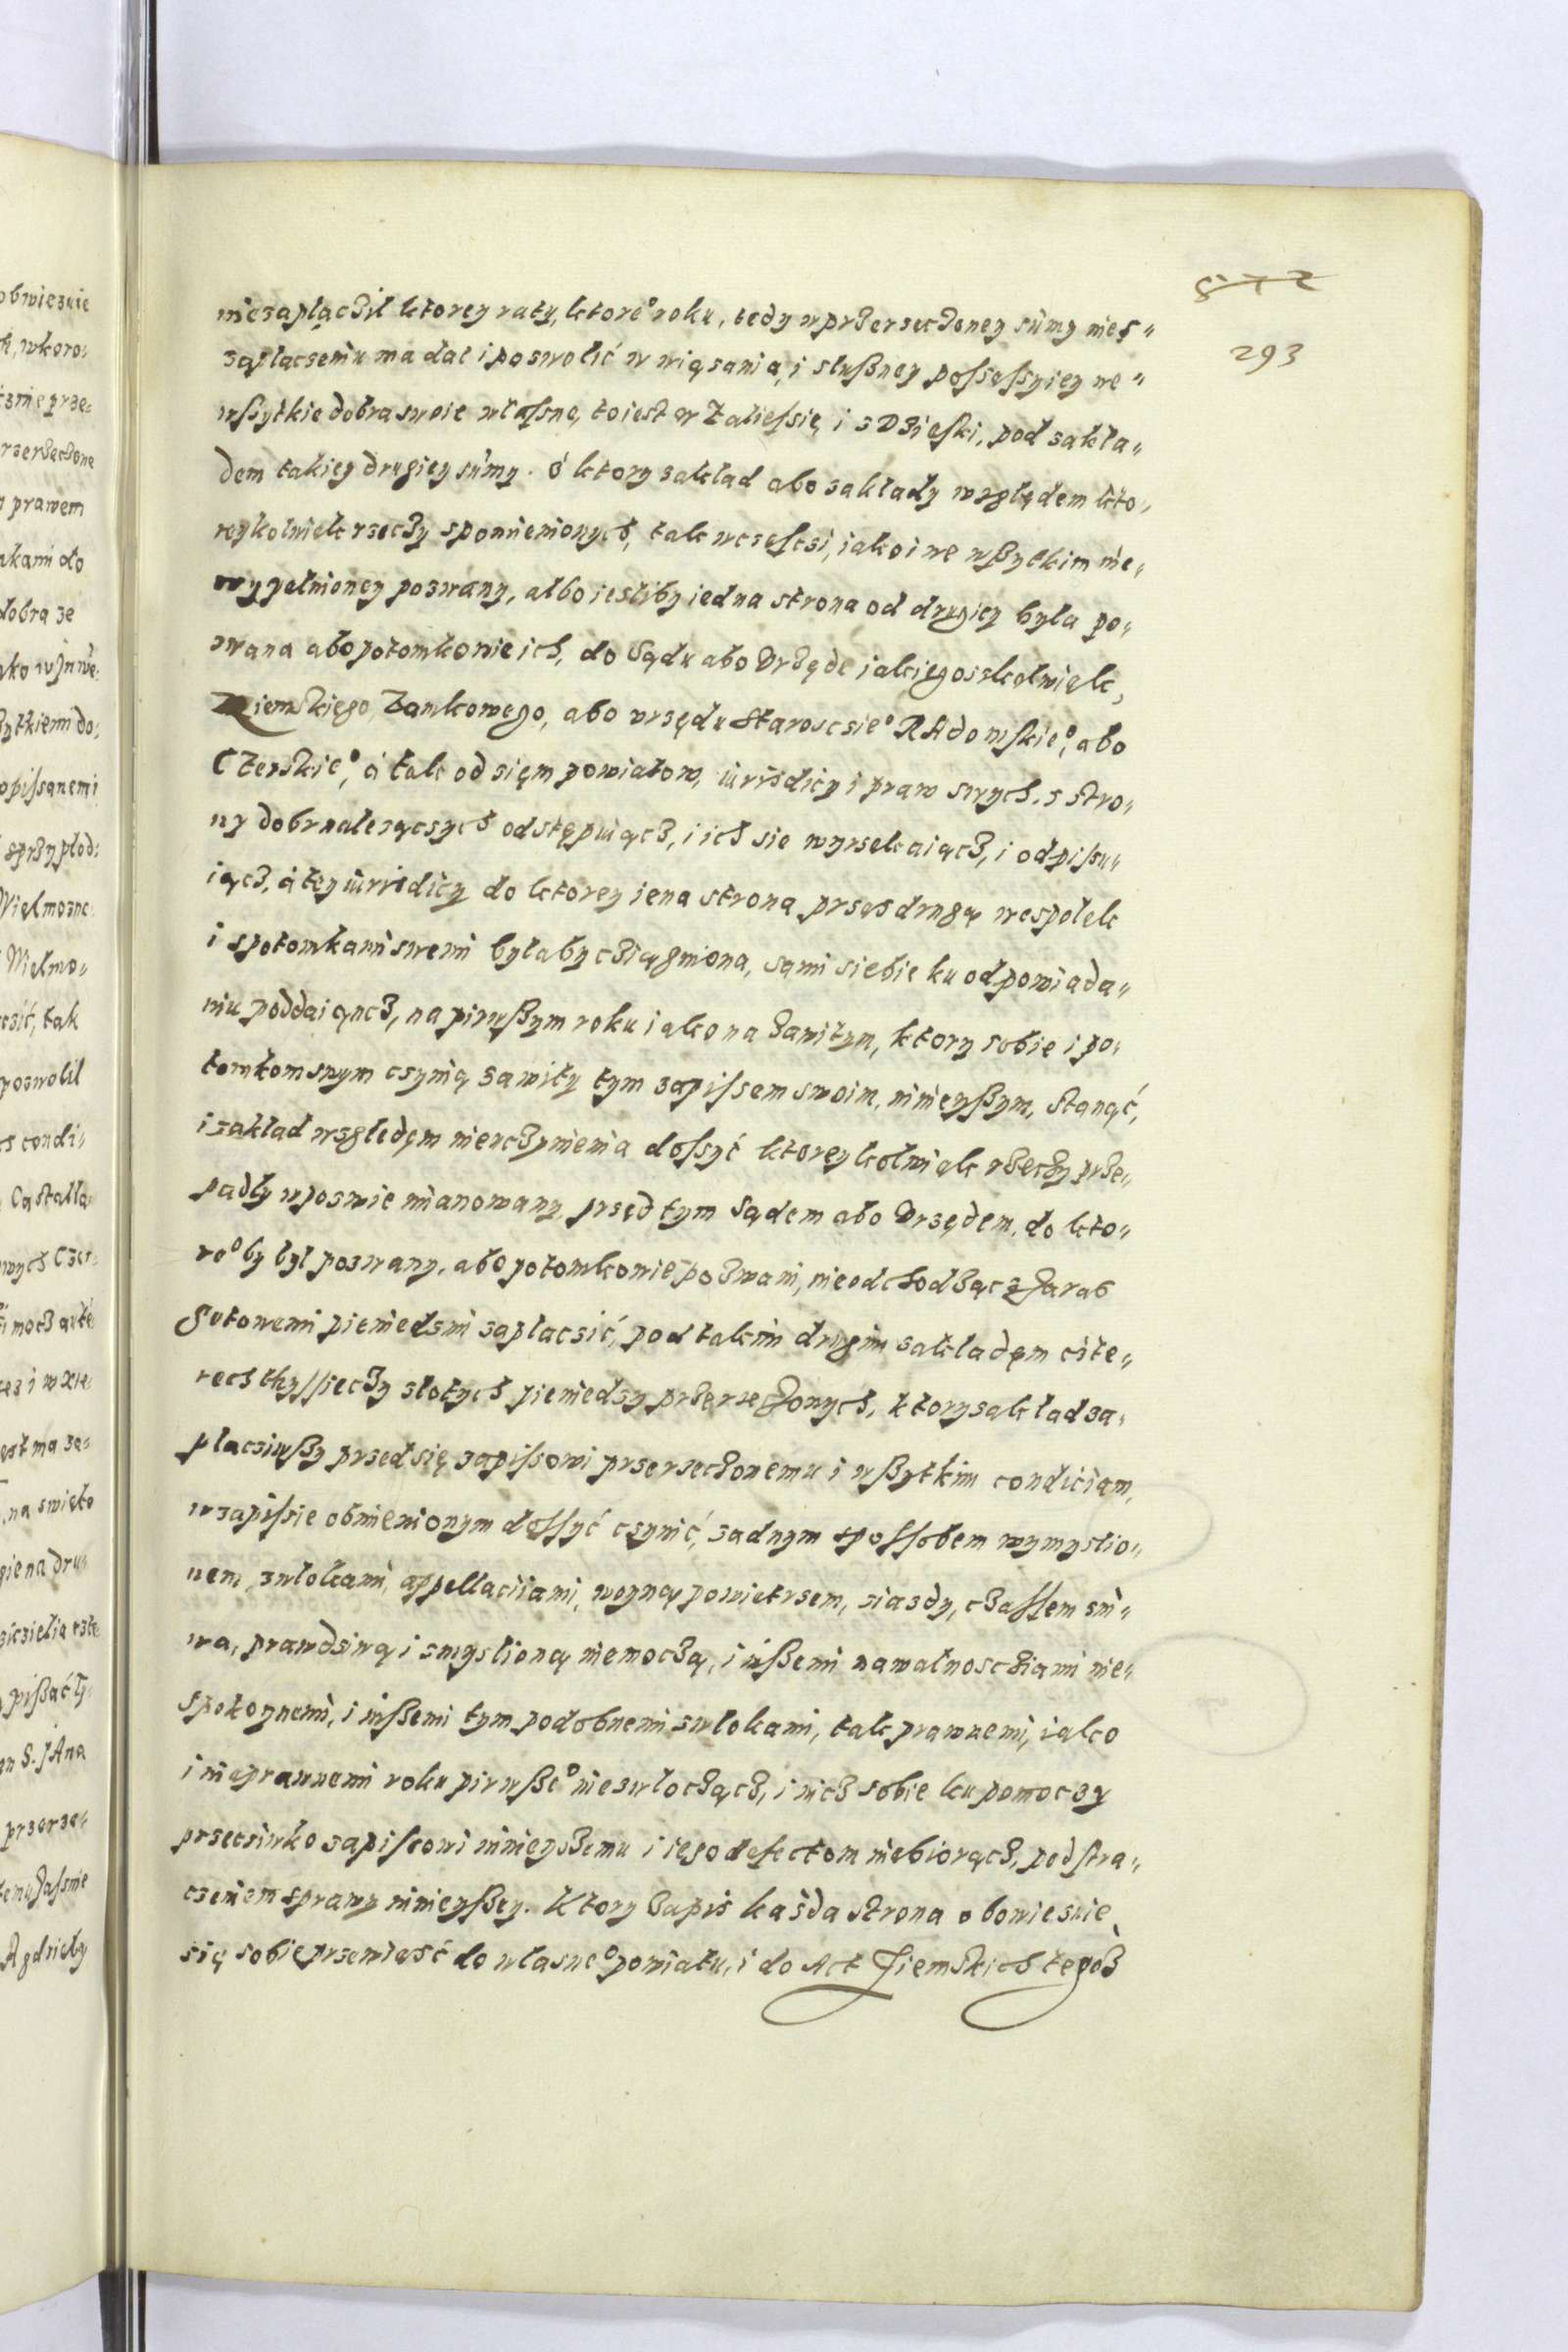 572
293
niezapłaczil ktorey raty, ktore° roku, tedy w przerzeczoney sumy niez„
zaplaczeniu ma dac i pozwolić w wiązania, i słuszney possessyiey we„
wszytkie dobra swoie własne, to iest w Zaliessie, i z Dzieski, pod zakla„
dem takiey drugiey sumy. ó ktory zaklad abo zakłady względem kto„
reykolwiek rzeczy zpomienionych, tak w czesczi, iako i we wszytkim nie„
wypełnioney pozwany, albo iesliby iedna strona od drugiey była po„
zwana abo potomkowie ich, do Sądu abo Vrzędu iakiegoszkolwiek,
Ziemskiego Zamkowego, abo vrzędu Starosczie° RAdomskie°, abo
CZerskie°, á tak od sięm powiatow, iurisdicy i praw swych. z stro„
ny dobr należączych odstępuiącz, i ich sie wyrzekaiącz, i odpisu„
iącz, á tey iurisdicy do ktorey iena strona przez drugą wespołek
i z potomkami swemi byłaby cziągniona, sami siebie ku odpowiada„
niu poddaiąncz, na pirwszym roku iako na zawitym, ktory sobie i po„
tomkom swym czynią zawity tym zapissem swoim, ninieyszym, stanąć,
i zakład względem nieuczynienia dossyć ktoreykolwiek rzeczy prze„
padły w pozwie mianowany, przed tym Sądem abo Vrzędem, do kto„
re°by był pozwany, abo potomkowie pozwani, nie odchodzącz zaraz
gotowemi pieniedzmi zaplaczić, pod takim drugim zakladęm czte„
rech thyssieczy złotych pieniedzy przerzeczonych, ktory zaklad za„
placziwszy przedsię zapissowi przerzeczonemu i wszytkim condiciam,
w zapissie obmienionym dossyć czynić, żadnym spossobem wymyslio„
nem zwłokami, appellaciiami, woyną powietrzem, ziazdy, czassem żni„
wa, prawdziwą i zmyslioną niemoczą, i inszemi nawalnoscziami nie„
spokoynemi, i inszemi tym podobnemi zwlokami, tak prawnemi, iako
i nieprawnemi roku pirwsze° nie zwłocząch, i nicz sobie ku pomoczy
przecziwko zapisowi ninieyszemu i iego defectom niebiorącz, pod stra„
czeniem sprawy ninieyszey. Ktory Zapis każda strona obowiezuie
się sobie przewieść do własne° powiatu, i do Act Ziemskich tegoż